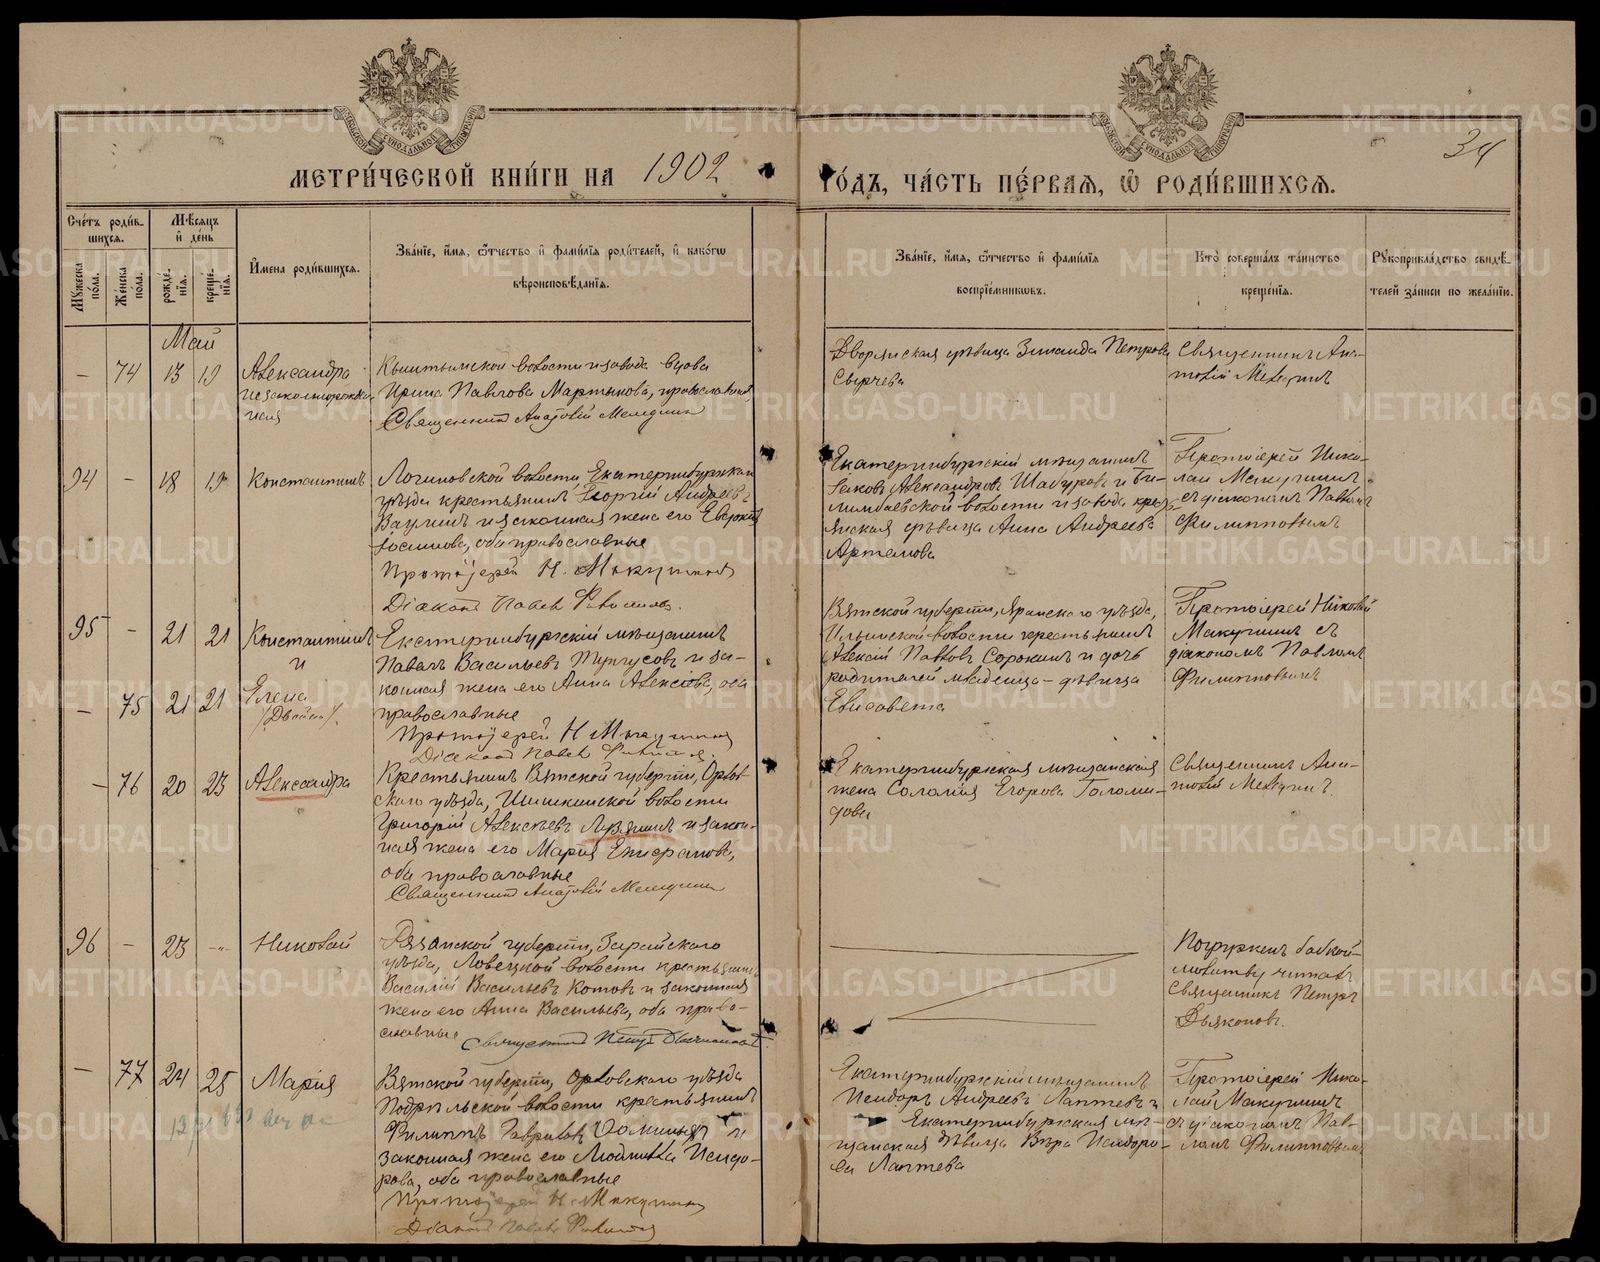 МЕТРИ́ЧЕСКОЙ КНИ́ГИ НА 1902
ГО́ДЪ, ЧА́СТЬ ПЕ́РВАЯ, Ѿ РОДИ́ВШИХСЯ.
34
Сче́тъ роди́в-
шихся.
Мѣ́сяцъ
и де́нь
Му́жеска по́ла.
Же́нска по́ла.
рожде́нїя.
креще́нїя.
И́мена роди́вшихся.
Зва́нїе, и́мя, ѻ҆́тчество и фами́лїя роди́телей, и како́гѡ
вѣроисповѣ́данїя.
Зва́нїе, и́мя, ѻ҆́тчество и фами́лїя
воспрїе́мниковъ.
Кто̀ соверша́лъ та́инство
креще́нїя.
Рꙋкоприкла́дство свидѣ́-
телей за́писи по жела́нїю.
Май
– 74 13 19
Александра
незаконнорожден-
ная
Кыштымской волости и завода вдова
Ирина Павлова Мартынова, православная
Священник Анатолий
Дворянская дѣвица Зинаида Петрова
Священникъ Ана-
толій
94 – 18 19
Константинъ
Логиновской волости Екатеринбургскаго
уѣзда крестьянинъ Георгій Андреевъ
Ваулинъ и законная жена его
оба православные
Протоіерей Н.
Діаконъ Павелъ
Екатеринбургскій мѣщанинъ
Яковъ Александровъ Шабуровъ и Би-
лимбаевской волости и завода кресть-
янская дѣвица Анна Андреева
Артемова
Протоіерей Нико-
лай Макушинъ
съ діакономъ Павломъ
Филипповымъ
95 – 21 21
Константинъ
и
– 75 21 21
Елена
/Двойни/.
Екатеринбургскій мѣщанинъ
Павелъ Васильевъ Тунгусовъ и за-
конная жена его Анна Алексѣева, оба
православные
Протоіерей Н
Діаконъ Павелъ
Вятской губерніи, Яранскаго уѣзда,
Ильинской волости крестьянинъ
Алексій Павловъ Сорокинъ и дочь
родителей младенца – дѣвица
Елисавета
Протоіерей Николай
Макушинъ съ
діакономъ Павломъ
Филипповымъ
– 76 20 23
Александра
Крестьянинъ Вятской губерніи, Орлов-
скаго уѣзда, Шишкинской волости
Григорій Алексѣевъ и закон-
ная жена его Марія Епифанова,
оба православные
Священник Анатолій
Екатеринбургская мѣщанская
жена Соломія Егорова Голоми-
дова
Священникъ Ана-
толій
96 – 23 –"–
Николай
Рязанской губерніи, Зарайскаго
уѣзда, Ловецкой волости крестьянинъ
Василій Васильевъ Котовъ и законная
жена его Анна Васильева, оба право-
славные.
Священник Петръ Дьяконовъ.
Погруженъ бабкой
молитву читалъ
Священникъ Петръ
Дьяконовъ.
– 77 24 25
Марія
Вятской губерніи, Орловскаго уѣзда
Подрѣльской волости крестьянинъ
Филиппъ Гавриловъ и
законная жена его Людмила Исидо-
рова, оба православные
Протоіерей Н.
Діаконъ Павелъ
Екатеринбургскій мѣщанинъ
Исидоръ Андреевъ Лаптевъ и
Екатеринбургская мѣ-
щанская дѣвица Вѣра Исидоро-
ва Лаптева
Протоіерей Нико-
лай Макушинъ
съ діакономъ Пав-
ломъ Филипповымъ
METRIKI.GASO-URAL.RU